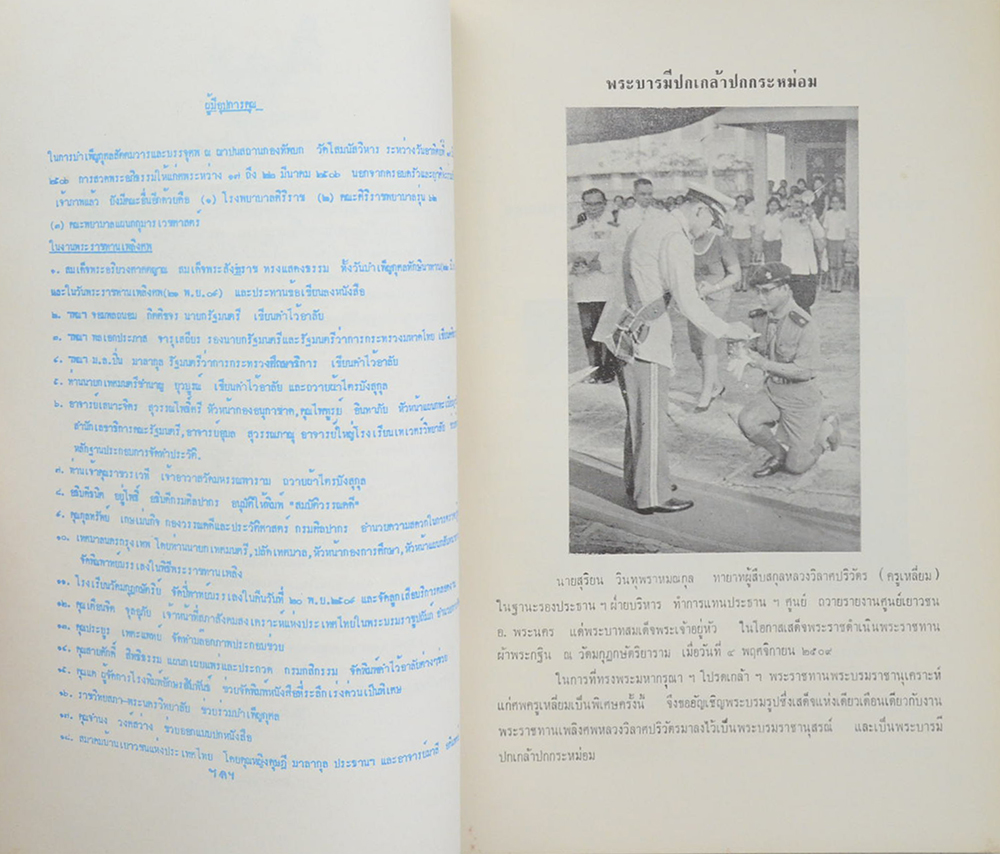 ผู้มีอุปการคุณ
ในการบำเพ็ญกุศลสัตตมวารและบรรจุศพ ณ ฌาปนสถานกองทัพบก วัดโสมนัสวิหาร ระหว่างวันอาทิตย์ที่
๒๕๐๖ การสวดพระอภิธรรมให้แก่ศพระหว่าง ๑๗ ถึง ๒๒ มีนาคม ๒๕๐๖ นอกจากครอบครัวและญาติ
เจ้าภาพแล้ว ยังมีคณะอื่นอีกด้วยคือ (๑) โรงพยาบาลศิริราช (๒) คณะศิริราชพยาบาลรุ่น ๖๒
(๓) คณะพยาบาลแผนกกุมารเวชศาสตร์
ในงานพระราชทานเพลิงศพ
๑. สมเด็จพระอริยวงศาคตญาณ สมเด็จพระสังฆราช ทรงแสดงธรรม ทั้งวันบำเพ็ญกุศลทักษิณานุทาน
และในวันพระราชทานเพลิงศพ(๒๑ พ.ย.๐๙) และประทานข้อเขียนลงหนังสือ
๒. ฯพณฯ จอมพลถนอม กิตติขจร นายกรัฐมนตรี เขียนคำไว้อาลัย
๓. ฯพณฯ พลเอกประภาส จารุเสถียร รองนายกรัฐมนตรีและรัฐมนตรีว่าการกระทรวงมหาดไทย
๔. ฯพณฯ ม.ล.ปิ่น มาลากุล รัฐมนตรีว่าการกระทรวงศึกษาธิการ เขียนคำไว้อาลัย
๕. ท่านนายกเทศมนตรีชำนาญ ยุวบูรณ์ เขียนคำไว้อาลัย และถวายผ้าไตรบังสุกุล
๖. อาจารย์เสนาะจิตร สุวรรณโพธิ์ศรี หัวหน้ากองอนุกาชาด,คุณไพฑูรย์ อินทาภัย หัวหน้าแผนก
สำนักเลขาธิการคณะรัฐมนตรี,อาจารย์อุบล สุวรรณภาณุ อาจารย์ใหญ่โรงเรียนเทเวศร์วิทยาลัย
หลักฐานประกอบการจัดทำประวัติ.
๗. ท่านเจ้าคุณราชวรเวที เจ้าอาวาสวัดมหรรณพาราม ถวายผ้าไตรบังสุกุล
๘. อธิบดีธนิต อยู่โพธิ์ อธิบดีกรมศิลปากร อนุมัติให้พิมพ์ "สมบัติวรรณคดี"
๙. คุณกุลทรัพย์ เกษแม่นกิจ กองวรรณคดีและประวัติศาสตร์ กรมศิลปากร อำนวยความสะดวกในการ
๑๐. เทศบาลนครกรุงเทพ โดยท่านนายกเทศมนตรี,ปลัดเทศบาล,หัวหน้ากองการศึกษา,หัวหน้าแผนก
จัดพิณพาทย์บรรเลงในพิธีพระราชทานเพลิง
๑๑. โรงเรียนวัดมกุฎกษัตริย์ จัดปี่พาทย์บรรเลงในคืนวันที่ ๒๐ พ.ย.๒๕๐๙ และจัดลูกเสือบริการตลอดงาน
๑๒. คุณเตือนจิต จุลฤภัย เจ้าหน้าที่สภาสังคมสงเคราะห์แห่งประเทศไทยในพระบรมราชูปถัมภ์
๑๓. คุณประยูร เพศะแพทย์ จัดทำบล๊อกภาพประกอบช่วย
๑๔. คุณสายศักดิ์ สิทธิธรรม แผนกเผยแพร่และประกวด กรมกสิกรรม จัดพิมพ์คำไว้อาลัย
๑๕. ผู้จัดการโรงพิมพ์อักษรสัมพันธ์ ช่วยจัดพิมพ์หนังสือที่ระลึกเร่งด่วนเป็นพิเศษ
๑๖. ราชวิทยสภา-พระนครวิทยาลัย ช่วยร่วมบำเพ็ญกุศล
๑๗. คุณจำนง วงศ์สว่าง ช่วยออกแบบปกหนังสือ
๑๘. สมาคมบ้านเยาวชนแห่งประเทศไทย โดยคุณหญิงดุษฎี มาลากุล ประธานฯ และอาจารย์มาลี
ฯลฯ
พระบารมีปกเกล้าปกกระหม่อม
นายสุริยน วินทุพราหมณกุล ทายาทผู้สืบสกุลหลวงวิลาศปริวัตร (ครูเหลี่ยม)
ในฐานะรองประธาน ฯ ฝ่ายบริหาร ทำการแทนประธาน ฯ ศูนย์ ถวายรายงานศูนย์เยาวชน
อ. พระนคร แด่พระบาทสมเด็จพระเจ้าอยู่หัว ในโอกาสเสด็จพระราชดำเนินพระราชทาน
ผ้าพระกฐิน ณ วัดมกุฎกษัตริยาราม เมื่อวันที่ ๔ พฤศจิกายน ๒๕๐๙
ในการที่ทรงพระมหากรุณา ฯ โปรดเกล้า ฯ พระราชทานพระบรมราชานุเคราะห์
แก่ศพครูเหลี่ยมเป็นพิเศษครั้งนี้ จึงขออัญเชิญพระบรมรูปซึ่งเสด็จแห่งเดียวเดือนเดียวกับงาน
พระราชทานเพลิงศพหลวงวิลาศปริวัตรมาลงไว้เป็นพระบรมราชานุสรณ์ และเป็นพระบารมี
ปกเกล้าปกกระหม่อม